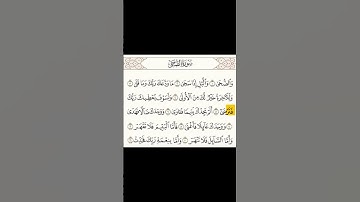 سورة الضحى
وَٱلضُّحَىٰ ١ وَٱلَّيْلِ إِذَا سَجَىٰ ٢ مَا وَدَّعَكَ رَبُّكَ وَمَا قَلَىٰ ٣
وَلَلْـَٔاخِرَةُ خَيْرٌ لَّكَ مِنَ ٱلْأُولَىٰ ٤ وَلَسَوْفَ يُعْطِيكَ رَبُّكَ
فَتَرْضَىٰ ٥ أَلَمْ يَجِدْكَ يَتِيمًا فَـَٔاوَىٰ ٦ وَوَجَدَكَ ضَآلًّا فَهَدَىٰ
٧ وَوَجَدَكَ عَآئِلًا فَأَغْنَىٰ ٨ فَأَمَّا ٱلْيَتِيمَ فَلَا تَقْهَرْ ٩
وَأَمَّا ٱلسَّآئِلَ فَلَا تَنْهَرْ ١٠ وَأَمَّا بِنِعْمَةِ رَبِّكَ فَحَدِّثْ ١١